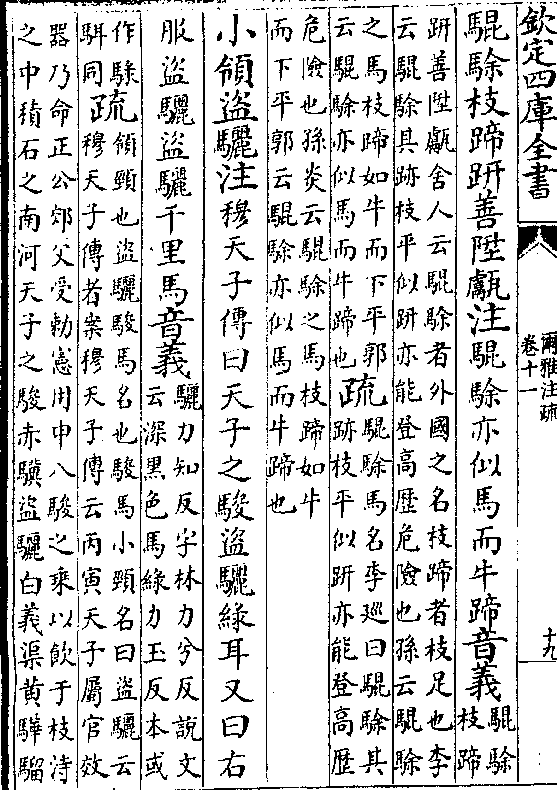 欽定四庫全書
爾雅注疏
卷十一
十九
騉駼枝蹄趼善陞甗注騉駼亦似馬而牛蹄音義騉駼
枝蹄
趼善陞甗舍人云騉駼者外國之名枝蹄者枝足也李
云騉駼其跡枝平似趼亦能登高歴危險也孫云騉駼
之馬枝蹄如牛而下平郭
云騉駼亦似馬而牛蹄也疏騉駼馬名李廵曰騉駼其
跡枝平似趼亦能登高歴
危險也孫炎云騉駼之馬枝蹄如牛
而下平郭云騉駼亦似馬而牛蹄也
小領盜驪注穆天子傳曰天子之駿盜驪綠耳又曰右
服盜驪盜驪千里馬音義驪力知反字林力兮反說文
云深黑色馬綠力玉反本或
作騄
駬同疏領頸也盜驪駿馬名也駿馬小頸名曰盜驪云
穆天子傳者案穆天子傳云丙寅天子屬官效
器乃命正公郊父受勅憲用申八駿之乗以飲于枝洔
之中積石之南河天子之駿赤驥盜驪白義渠黄驊騮